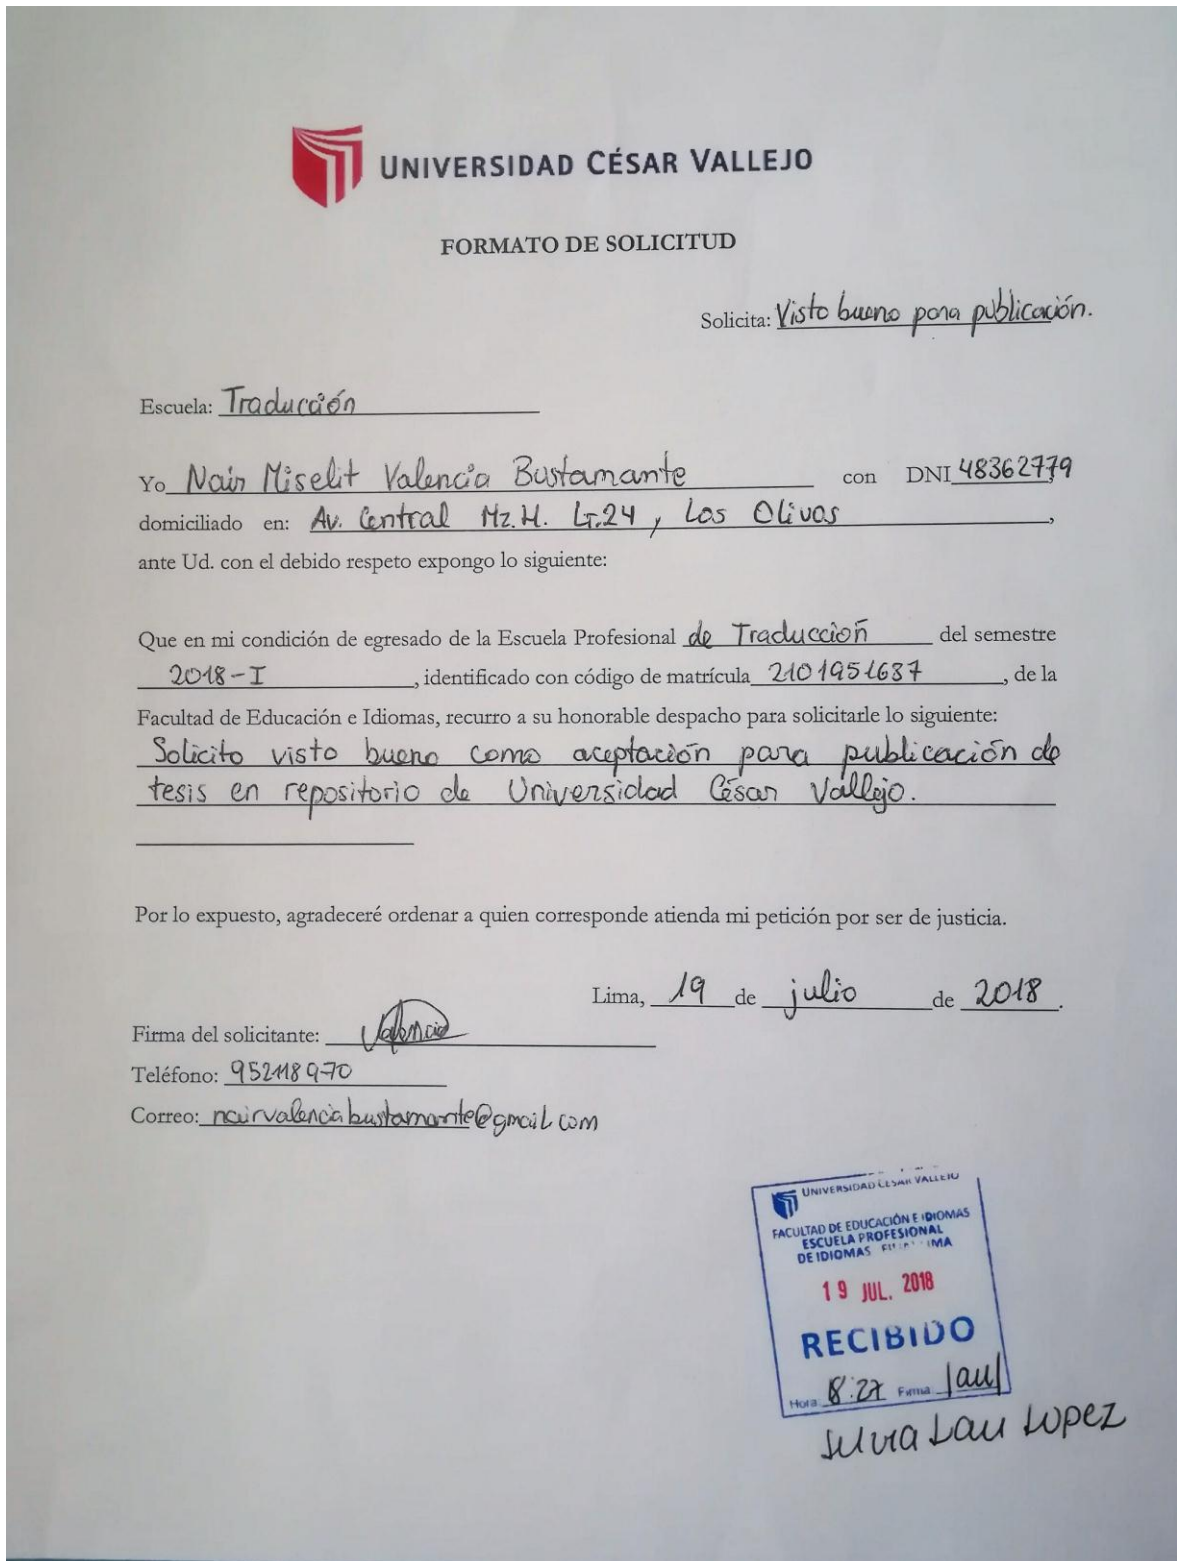 UNIVERSIDAD CÉSAR VALLEJO
FORMATO DE SOLICITUD
Solicita: Visto bueno para publicación.
Escuela: Traducción
Yo Nair Miselit Valencia Bustamante con DNI 48362779
domiciliado en: Av. Central Mz.H. Lt.24, Los Olivos,
ante Ud. con el debido respeto expongo lo siguiente:
Que en mi condición de egresado de la Escuela Profesional de Traducción del semestre
2018-I, identificado con código de matrícula 2101951637, de la
Facultad de Educación e Idiomas, recurro a su honorable despacho para solicitarle lo siguiente:
Solicito visto bueno como aceptación para publicación de
tesis en repositorio de Universidad César Vallejo.
Por lo expuesto, agradeceré ordenar a quien corresponde atienda mi petición por ser de justicia.
Lima, 19 de julio de 2018.
Firma del solicitante: Valencia
Teléfono: 952118970
Correo: nairvalenciabustamante@gmail.com
UNIVERSIDAD CÉSAR VALLEJO
FACULTAD DE EDUCACIÓN E IDIOMAS
ESCUELA PROFESIONAL
DE IDIOMAS
19 JUL. 2018
RECIBIDO
Hora: 8:27 Firma: Lau
Silvia Lau Lopez